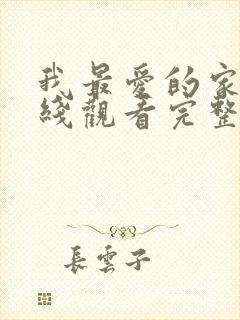 我最爱的家
綫觀看完整
長雲子